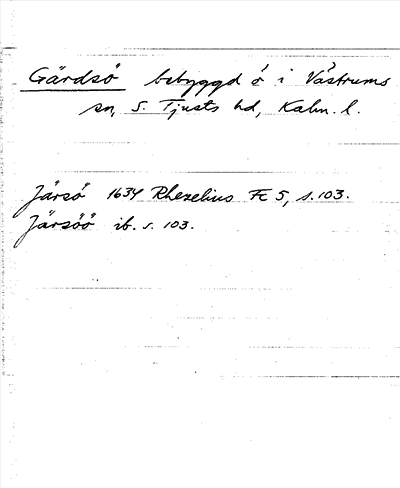 Gärdsö bebyggd ö i Västrums
sn, S. Tjusts hd, Kalm. l.
Järsö 1634 Rhezelius Fc 5, s. 103.
Järsöö ib. s. 103.